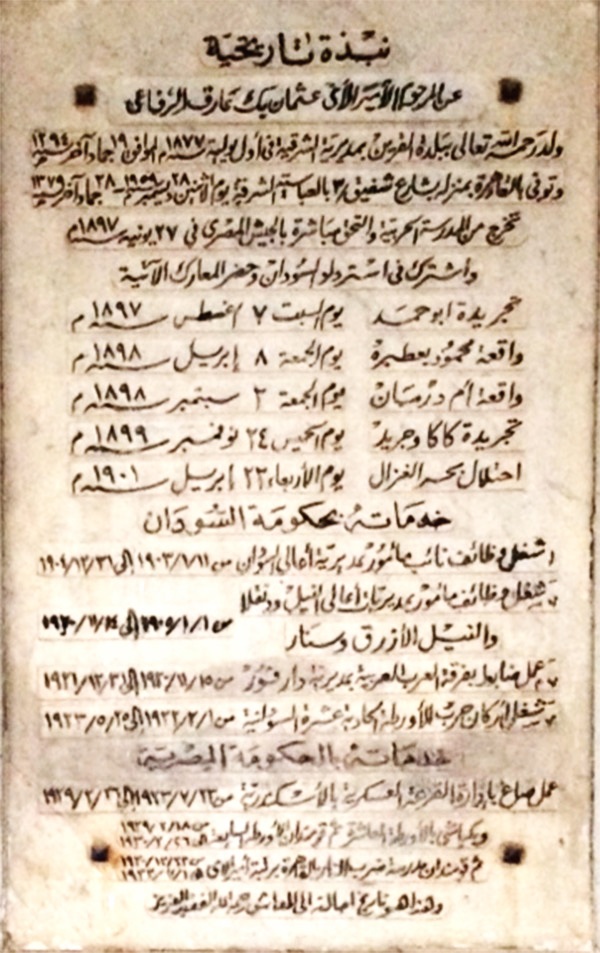 نبذة تاريخية
عن المرحوم الأميرالاى عثمان بك عارف الرفاعى
ولد رحمه الله تعالى ببلدة القرين بمديرية الشرقية فى أول يولية سنة ١٨٧٧م الموافق ١٩ جماد آخر سنة ١٢٩٤
وتوفى بالقاهرة بمنزله بشارع شفيق ٣ بالعباسية الشرقية يوم الاثنين ٢٨ ديسمبر سنة ١٩٥٩م ٢٨ جماد آخر سنة ١٣٧٩
تخرج من المدرسة الحربية والتحق مباشرة بالجيش المصرى فى ٢٧ يونيه سنة ١٨٩٧م
واشترك فى استرداد السودان وحضر المعارك الآتية
تجريدة ابو حمد يوم السبت ٧ اغسطس سنة ١٨٩٧م
واقعة محمود بعطبرة يوم الجمعة ٨ إبريل سنة ١٨٩٨م
واقعة أم درمان يوم الجمعة ٢ سبتمبر سنة ١٨٩٨م
تجريدة كاكا وجريد يوم الخميس ٢٤ نوفمبر سنة ١٨٩٩م
احتلال بحر الغزال يوم الأربعاء ٢٢ إبريل سنة ١٩٠١م
خدماته بحكومة السودان
شغل وظائف نائب مأمور بمديرية أعالى السودان من ١٩٠٣/١/١١ إلى ١٩٠٤/١٢/٣١
شغل وظائف مأمور بمديريات أعالى النيل ودنقلا
والنيل الأزرق وسنار من ١٩٠٥/١/١ إلى
عمل ضابط بفرقة العرب الغربية بمديرية دارفور من ١٩٢٠/١١/١٥ إلى ١٩٢١/١٢/٣١
شغل أركان حرب للأورطة الحادية عشرة السودانية من ١٩٢٢/٢/١ إلى ١٩٢٣/٥/٢٥
خدماته بالحكومة المصرية
عمل صاغ بإدارة القرعة العسكرية بالأسكندرية من ١٩٢٣/٧/٢٣ إلى ١٩٢٩/٢/٢٦
وبكباشى بالأورطة العاشرة ثم قومندان الأورطة السابعة
ثم قومندان مدرسة ضرب النار بالقاهرة برتبة أميرالاى
وهذا هو تاريخ احالته الى المعاش رحم الله الفقيد العزيز